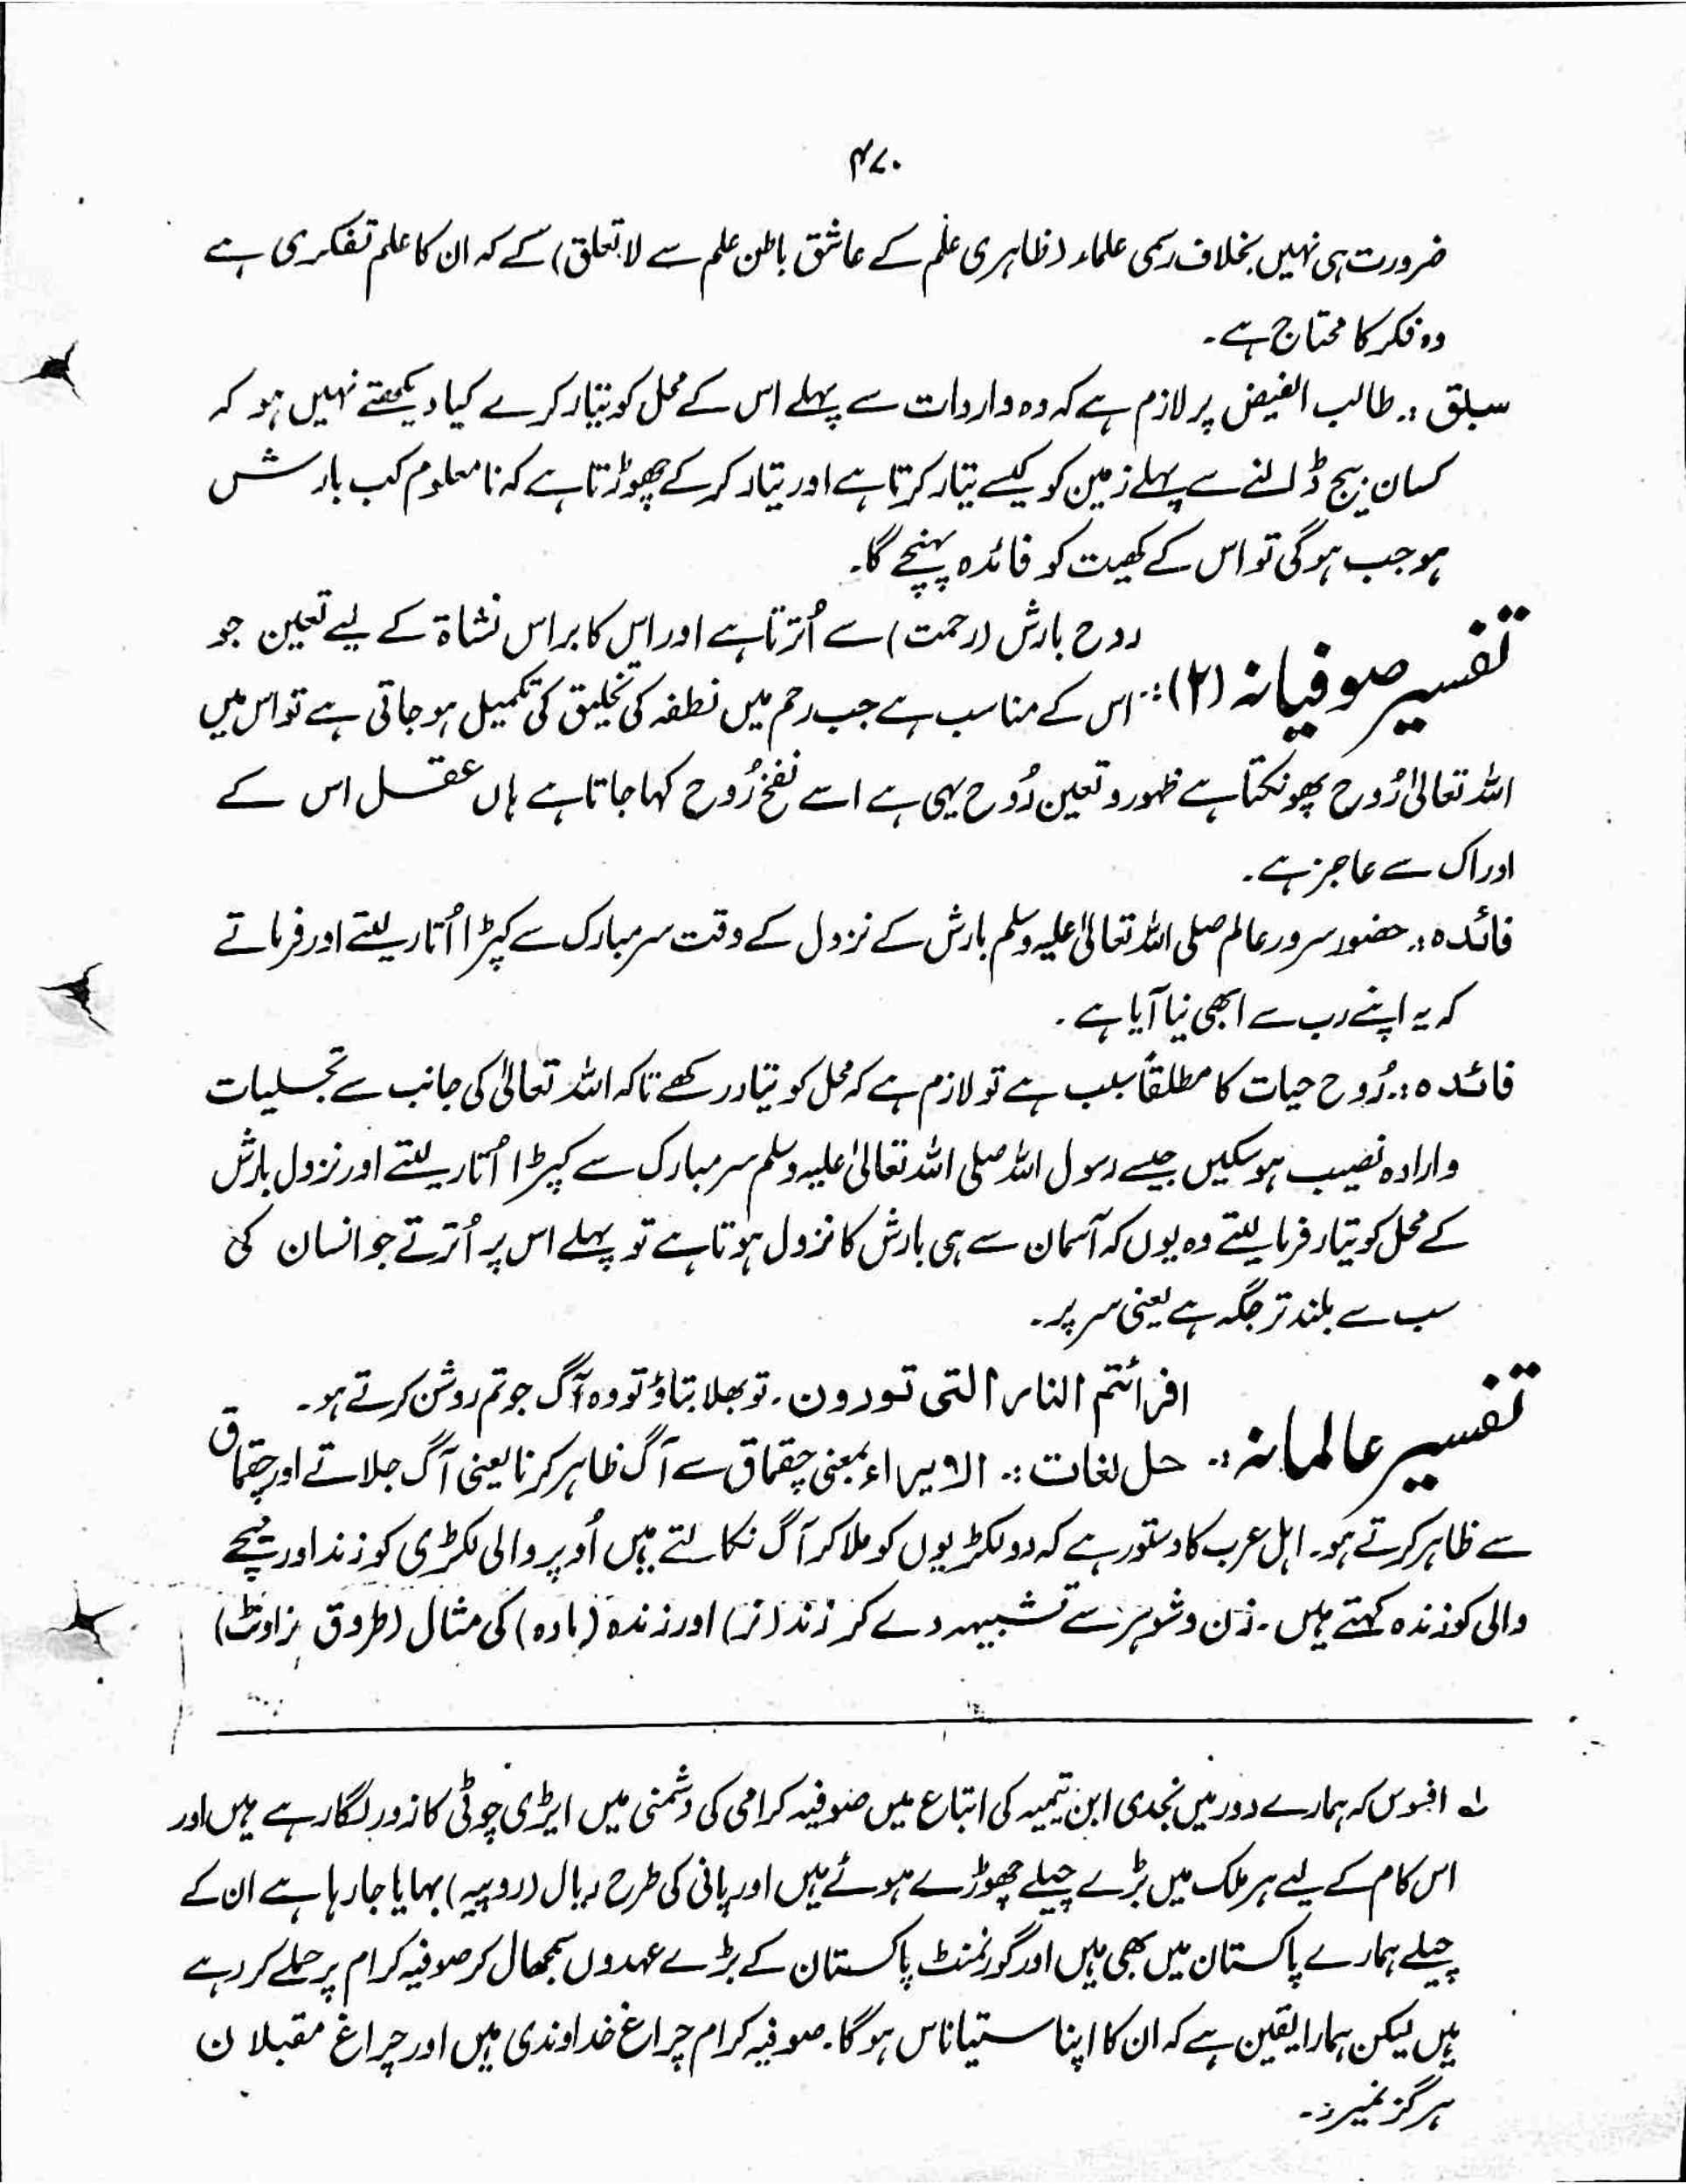 ۴۷۰
ضرورت ہی نہیں بخلاف رسمی علماء (ظاہری علم کے عاشق باطن علم سے لاتعلق) کے کہ ان کا علم تفکری ہے
وہ فکر کا محتاج ہے۔
سبق :۔ طالب الفیض پر لازم ہے کہ وہ واردات سے پہلے اس کے محل کو تیار کرے کیا دیکھتے نہیں ہو کہ
کسان بیج ڈالنے سے پہلے زمین کو کیسے تیار کرتا ہے اور تیار کر کے چھوڑتا ہے کہ نا معلوم کب بارش
ہو جب ہوگی تو اس کے کھیت کو فائدہ پہنچے گا۔
تفسیر صوفیانہ (۲) :۔ روح بارش (رحمت) سے اُترتا ہے اور اس کا براس نشاۃ کے لیے تعین جو
اس کے مناسب ہے جب رحم میں نطفہ کی تخلیق کی تکمیل ہو جاتی ہے تو اس میں
اللہ تعالیٰ رُوح پھونکتا ہے ظہور و تعین رُوح یہی ہے اسے نفخ رُوح کہا جاتا ہے ہاں عقل اس کے
ادراک سے عاجز ہے۔
فائدہ :۔ حضور سرور عالم صلی اللہ تعالیٰ علیہ وسلم بارش کے نزول کے وقت سر مبارک سے کپڑا اُتار لیتے اور فرماتے
کہ یہ اپنے رب سے ابھی نیا آیا ہے۔
فائدہ :۔ رُوح حیات کا مطلقاً سبب ہے تو لازم ہے کہ محل کو تیار رکھے تاکہ اللہ تعالیٰ کی جانب سے تجلیات
وارادہ نصیب ہو سکیں جیسے رسول اللہ صلی اللہ تعالیٰ علیہ وسلم سر مبارک سے کپڑا اُتار لیتے اور نزول بارش
کے محل کو تیار فرما لیتے وہ یوں کہ آسمان سے ہی بارش کا نزول ہوتا ہے تو پہلے اس پر اُترتے جو انسان کی
سب سے بلند تر جگہ ہے یعنی سر پر۔
تفسیر عالمانہ :۔ افرأئتم النار التی تورون۔ تو بھلا بتاؤ تو وہ آگ جو تم روشن کرتے ہو۔
حل لغات :۔ الایراء بمعنی چقماق سے آگ ظاہر کرنا یعنی آگ جلاتے اور چقماق
سے ظاہر کرتے ہو۔ اہل عرب کا دستور ہے کہ دو لکڑیوں کو ملا کر آگ نکالتے ہیں اُوپر والی لکڑی کو زند اور نیچے
والی کو زندہ کہتے ہیں۔ زن و شوہر سے تشبیہہ دے کر زند (نر) اور زندہ (مادہ) کی مثال (طروق زاوٹ)
لہ افسوس کہ ہمارے دور میں نجدی ابن تیمیہ کی اتباع میں صوفیہ کرامی کی دشمنی میں ایڑی چوٹی کا زور لگا رہے ہیں اور
اس کام کے لیے ہر ملک میں بڑے چیلے چھوڑے ہوئے ہیں اور پانی کی طرح ریال (روپیہ) بہایا جا رہا ہے ان کے
چیلے ہمارے پاکستان میں بھی ہیں اور گورنمنٹ پاکستان کے بڑے عہدوں سمبھال کر صوفیہ کرام پر حملے کر رہے
ہیں لیکن ہمارا یقین ہے کہ ان کا اپنا ستیاناس ہوگا۔ صوفیہ کرام چراغ خداوندی ہیں اور چراغ مقبلان
ہرگز نمیرد۔